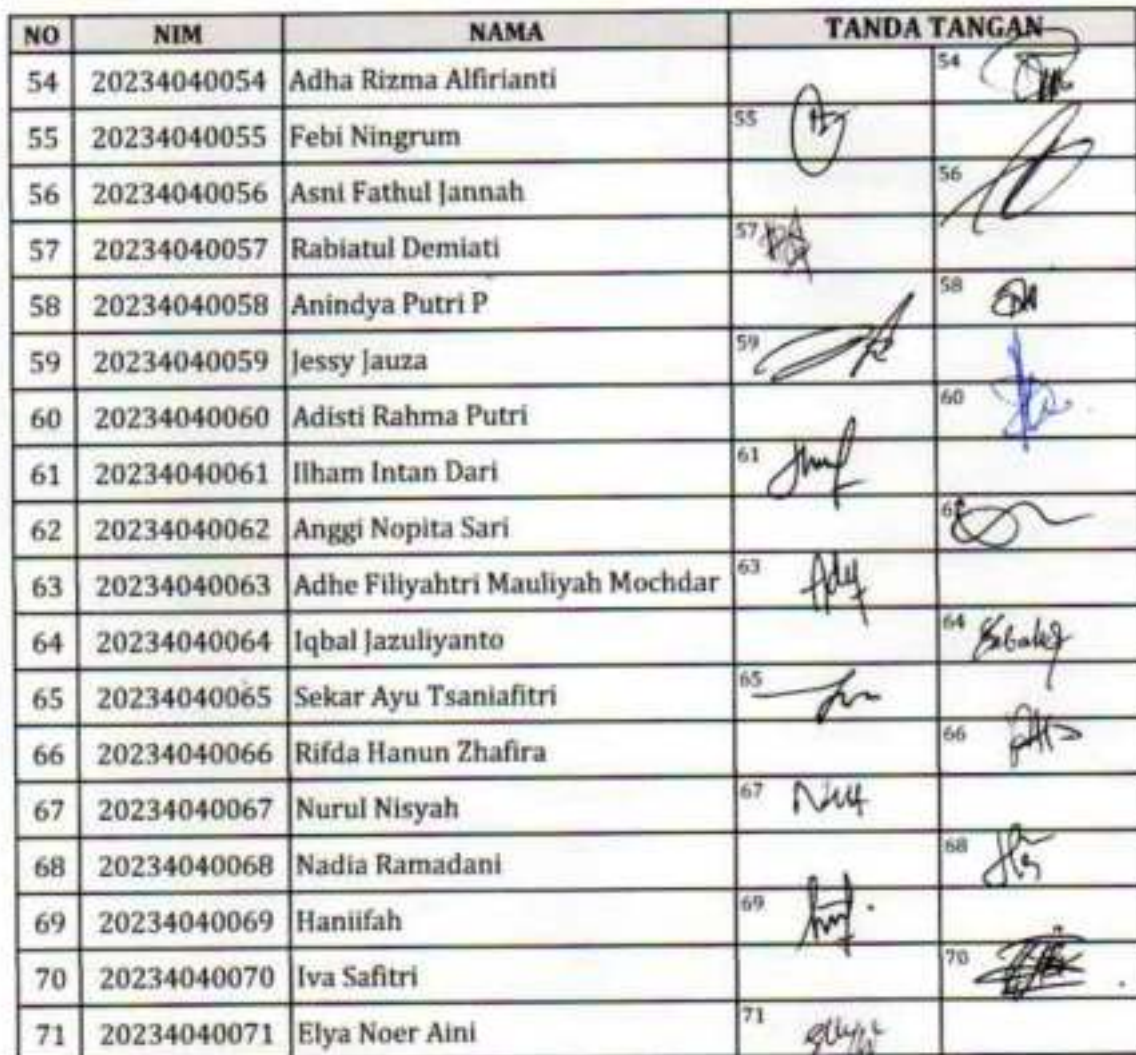 NO NIM NAMA TANDA TANGAN
54 20234040054 Adha Rizma Alfirianti 54
55 20234040055 Febi Ningrum 55
56 20234040056 Asni Fathul Jannah 56
57 20234040057 Rabiatul Demiati 57
58 20234040058 Anindya Putri P 58
59 20234040059 Jessy Jauza 59
60 20234040060 Adisti Rahma Putri 60
61 20234040061 Ilham Intan Dari 61
62 20234040062 Anggi Nopita Sari 62
63 20234040063 Adhe Filiyahtri Mauliyah Mochdar 63
64 20234040064 Iqbal Jazuliyanto 64
65 20234040065 Sekar Ayu Tsaniafitri 65
66 20234040066 Rifda Hanun Zhafira 66
67 20234040067 Nurul Nisyah 67
68 20234040068 Nadia Ramadani 68
69 20234040069 Haniifah 69
70 20234040070 Iva Safitri 70
71 20234040071 Elya Noer Aini 71